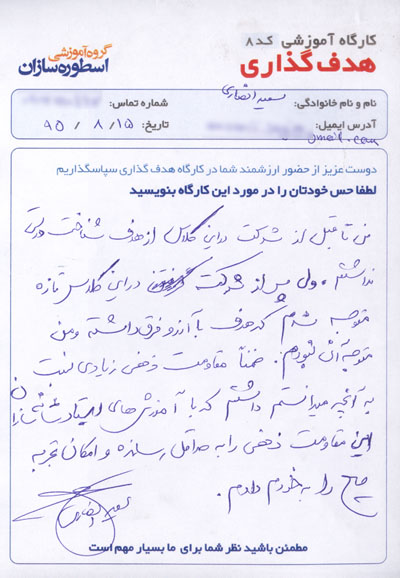 کارگاه آموزشی کد ۸
هدف گذاری
گروه آموزشی
اسطوره سازان
نام و نام خانوادگی: سعید انصاری
شماره تماس:
آدرس ایمیل:
mail.com
تاریخ: ۹۵ / ۸ / ۱۵
دوست عزیز از حضور ارزشمند شما در کارگاه هدف گذاری سپاسگذاریم
لطفا حس خودتان را در مورد این کارگاه بنویسید
من تا قبل از شرکت در این کلاس از هدف شناخت درستی
نداشتم ولی پس از شرکت در این کلاس تازه
متوجه شدم که هدف با آرزو فرق داشته و من
متوجه آن نبودم. ضمناً مقاومت ذهنی زیادی نسبت
به آنچه میدانستم داشتم که با آموزش های استاد
این مقاومت ذهنی را به حداقل رسانده و امکان تجربه
را به خودم دادم.
سعید انصاری
مطمئن باشید نظر شما برای ما بسیار مهم است